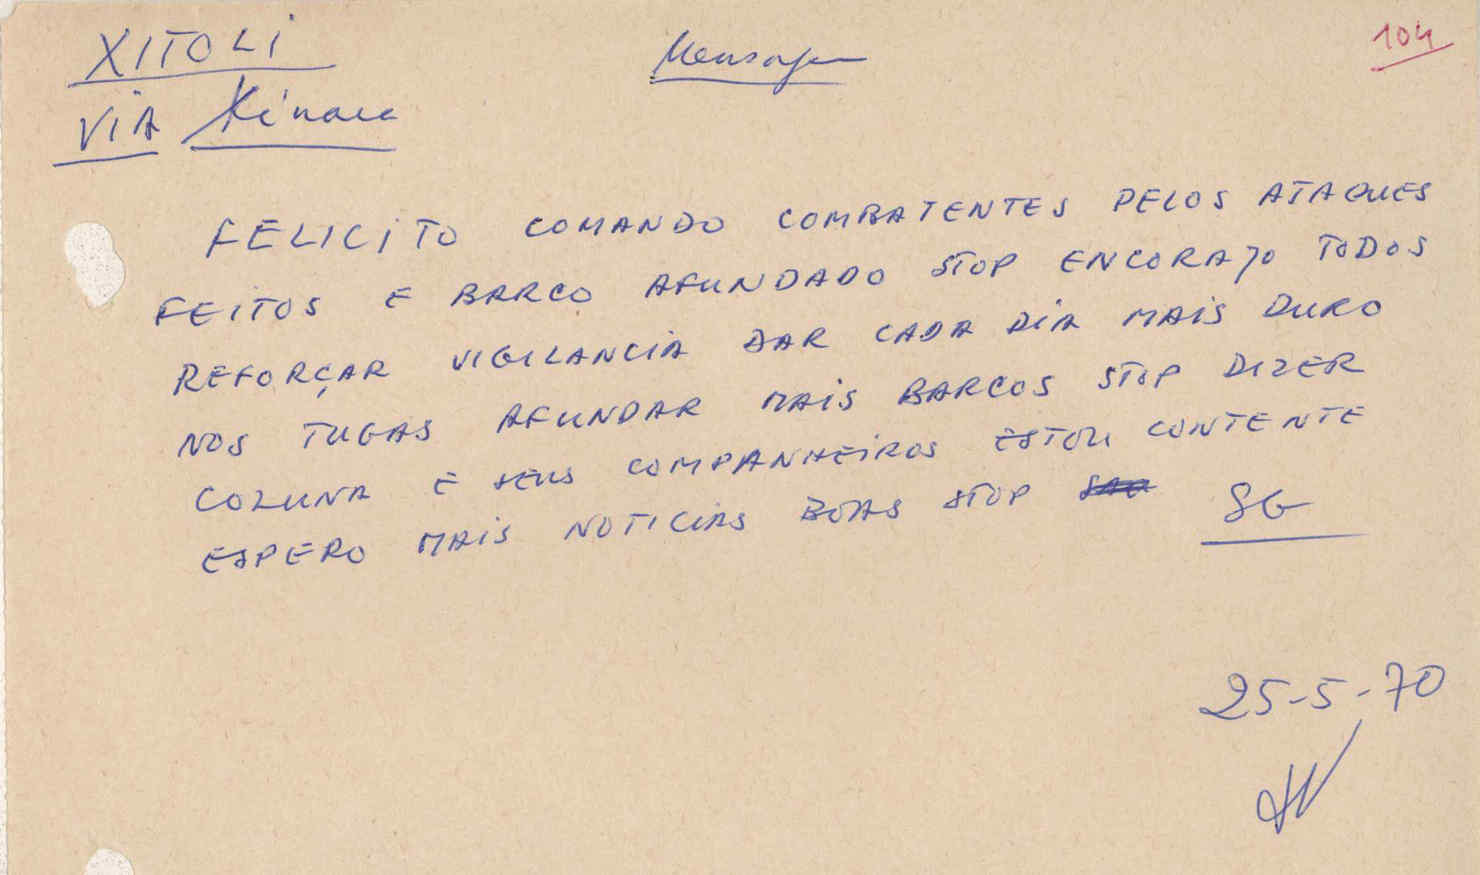 XITOLI
Mensagem
104
VIA Kinara
FELICITO COMANDO COMBATENTES PELOS ATAQUES
FEITOS E BARCO AFUNDADO STOP ENCORAJO TODOS
REFORÇAR VIGILANCIA DAR CADA DIA MAIS DURO
NOS TUGAS AFUNDAR MAIS BARCOS STOP DIZER
COLUNA E SEUS COMPANHEIROS ESTOU CONTENTE
ESPERO MAIS NOTICIAS BOAS STOP SG
25-5-70